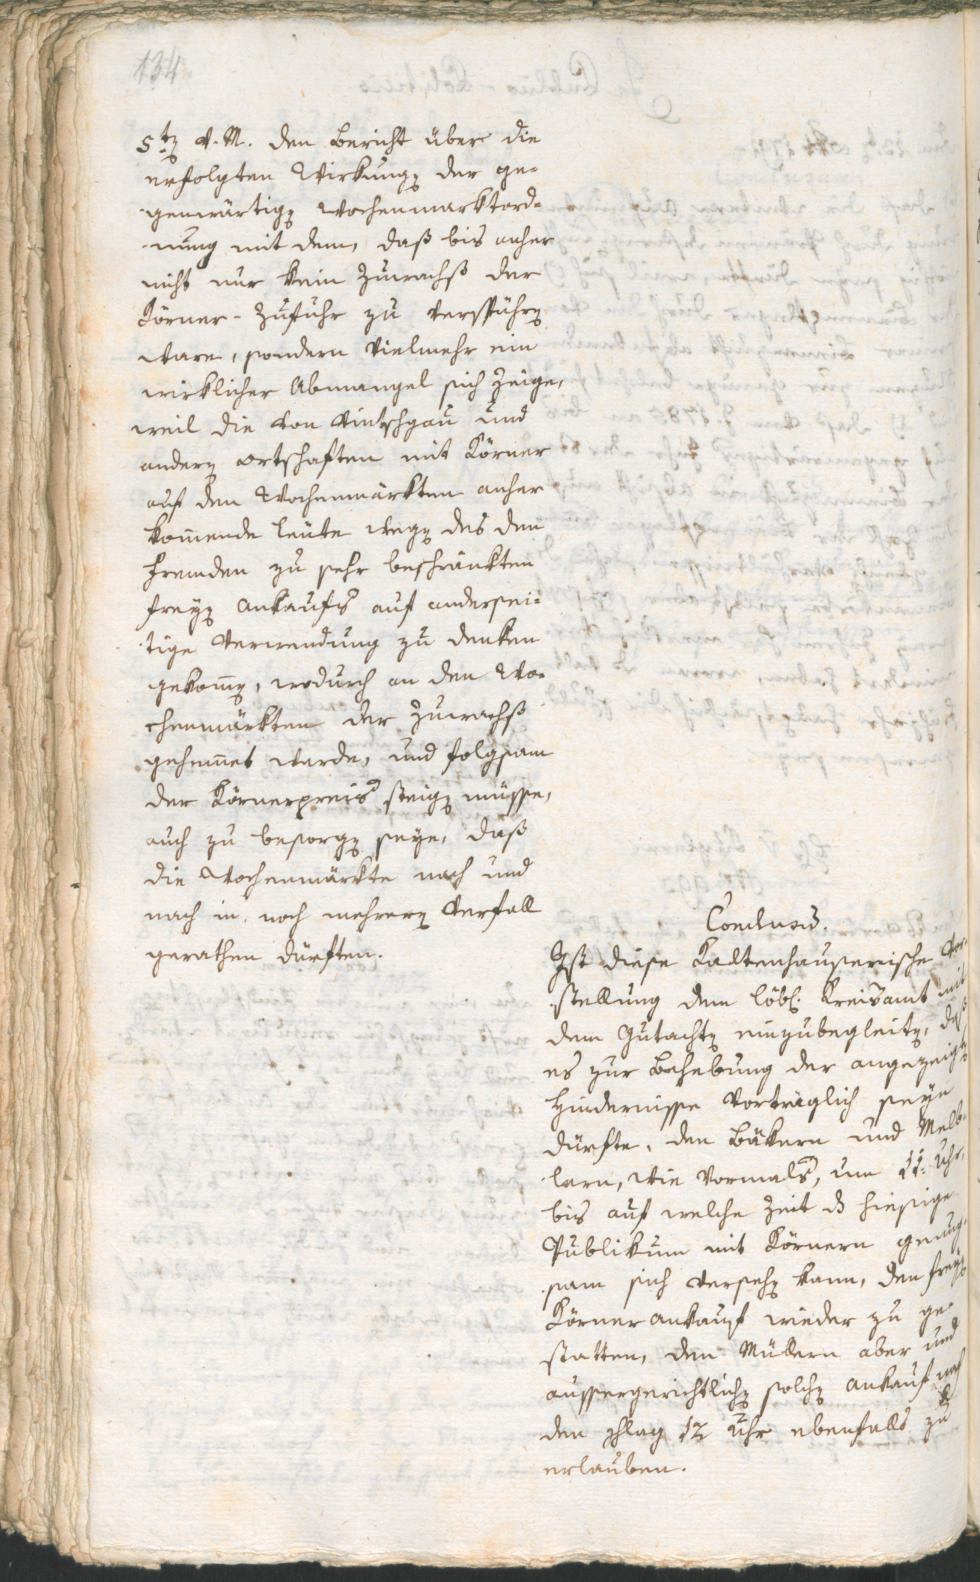 134
5t. v. M. den Bericht über die
erfolgten Wirkung der ge-
genwärtig Wochenmarktord-
nung mit dem, daß bis anher
nicht nur kein Zuwachß der
Körner-Zufuhr zu verspühren
ware, sondern vielmehr ein
wirklicher Abmangel sich zeige,
weil die von Vintschgau und
andern Ortschaften mit Körner
auf den Wochenmärkten anher
kommende Leüte wegen des den
Fremden zu sehr beschränkten
freyen Ankaufs auf andersei-
tige Verwendung zu denken
gekommen, wodurch an den Wo-
chenmärkten der Zuwachß
gehemmet werde, und folgsam
der Körnerpreis steigen müsse,
auch zu besorgen seye, daß
die Wochenmärkte nach und
nach in noch mehrern Verfall
gerathen dürften.
Conclusum.
Ist diese Kaltenhauserische Vor-
stellung dem löbl. Kreisamt mit
dem Gutachten einzubegleiten, daß
es zur Behebung der angezeigten
Hindernisse vorträglich seyn
dürfte, den Bäkern und Melb-
lern, wie vormals, um 11. Uhr,
bis auf welche Zeit das hiesige
Publikum mit Körnern genug-
sam sich versehen kann, den freyen
Körner ankauf wieder zu ge-
statten, den Müllern aber und
aussergerichtlichen solchen Ankauf nach
den schlag 12 Uhr ebenfalls zu
erlauben.